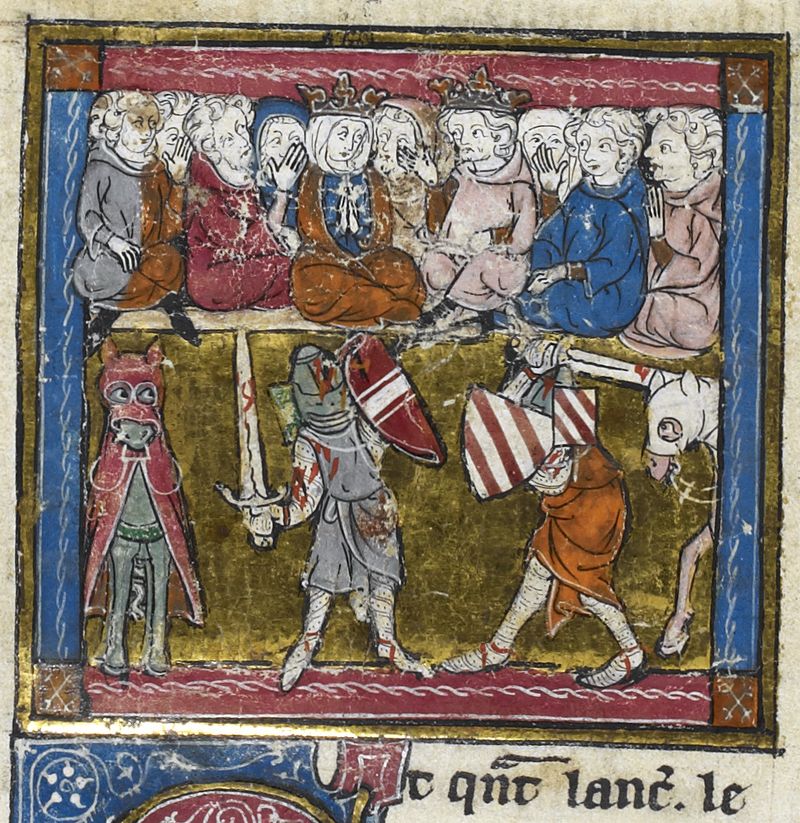 Et qn̄t lanc̉. le